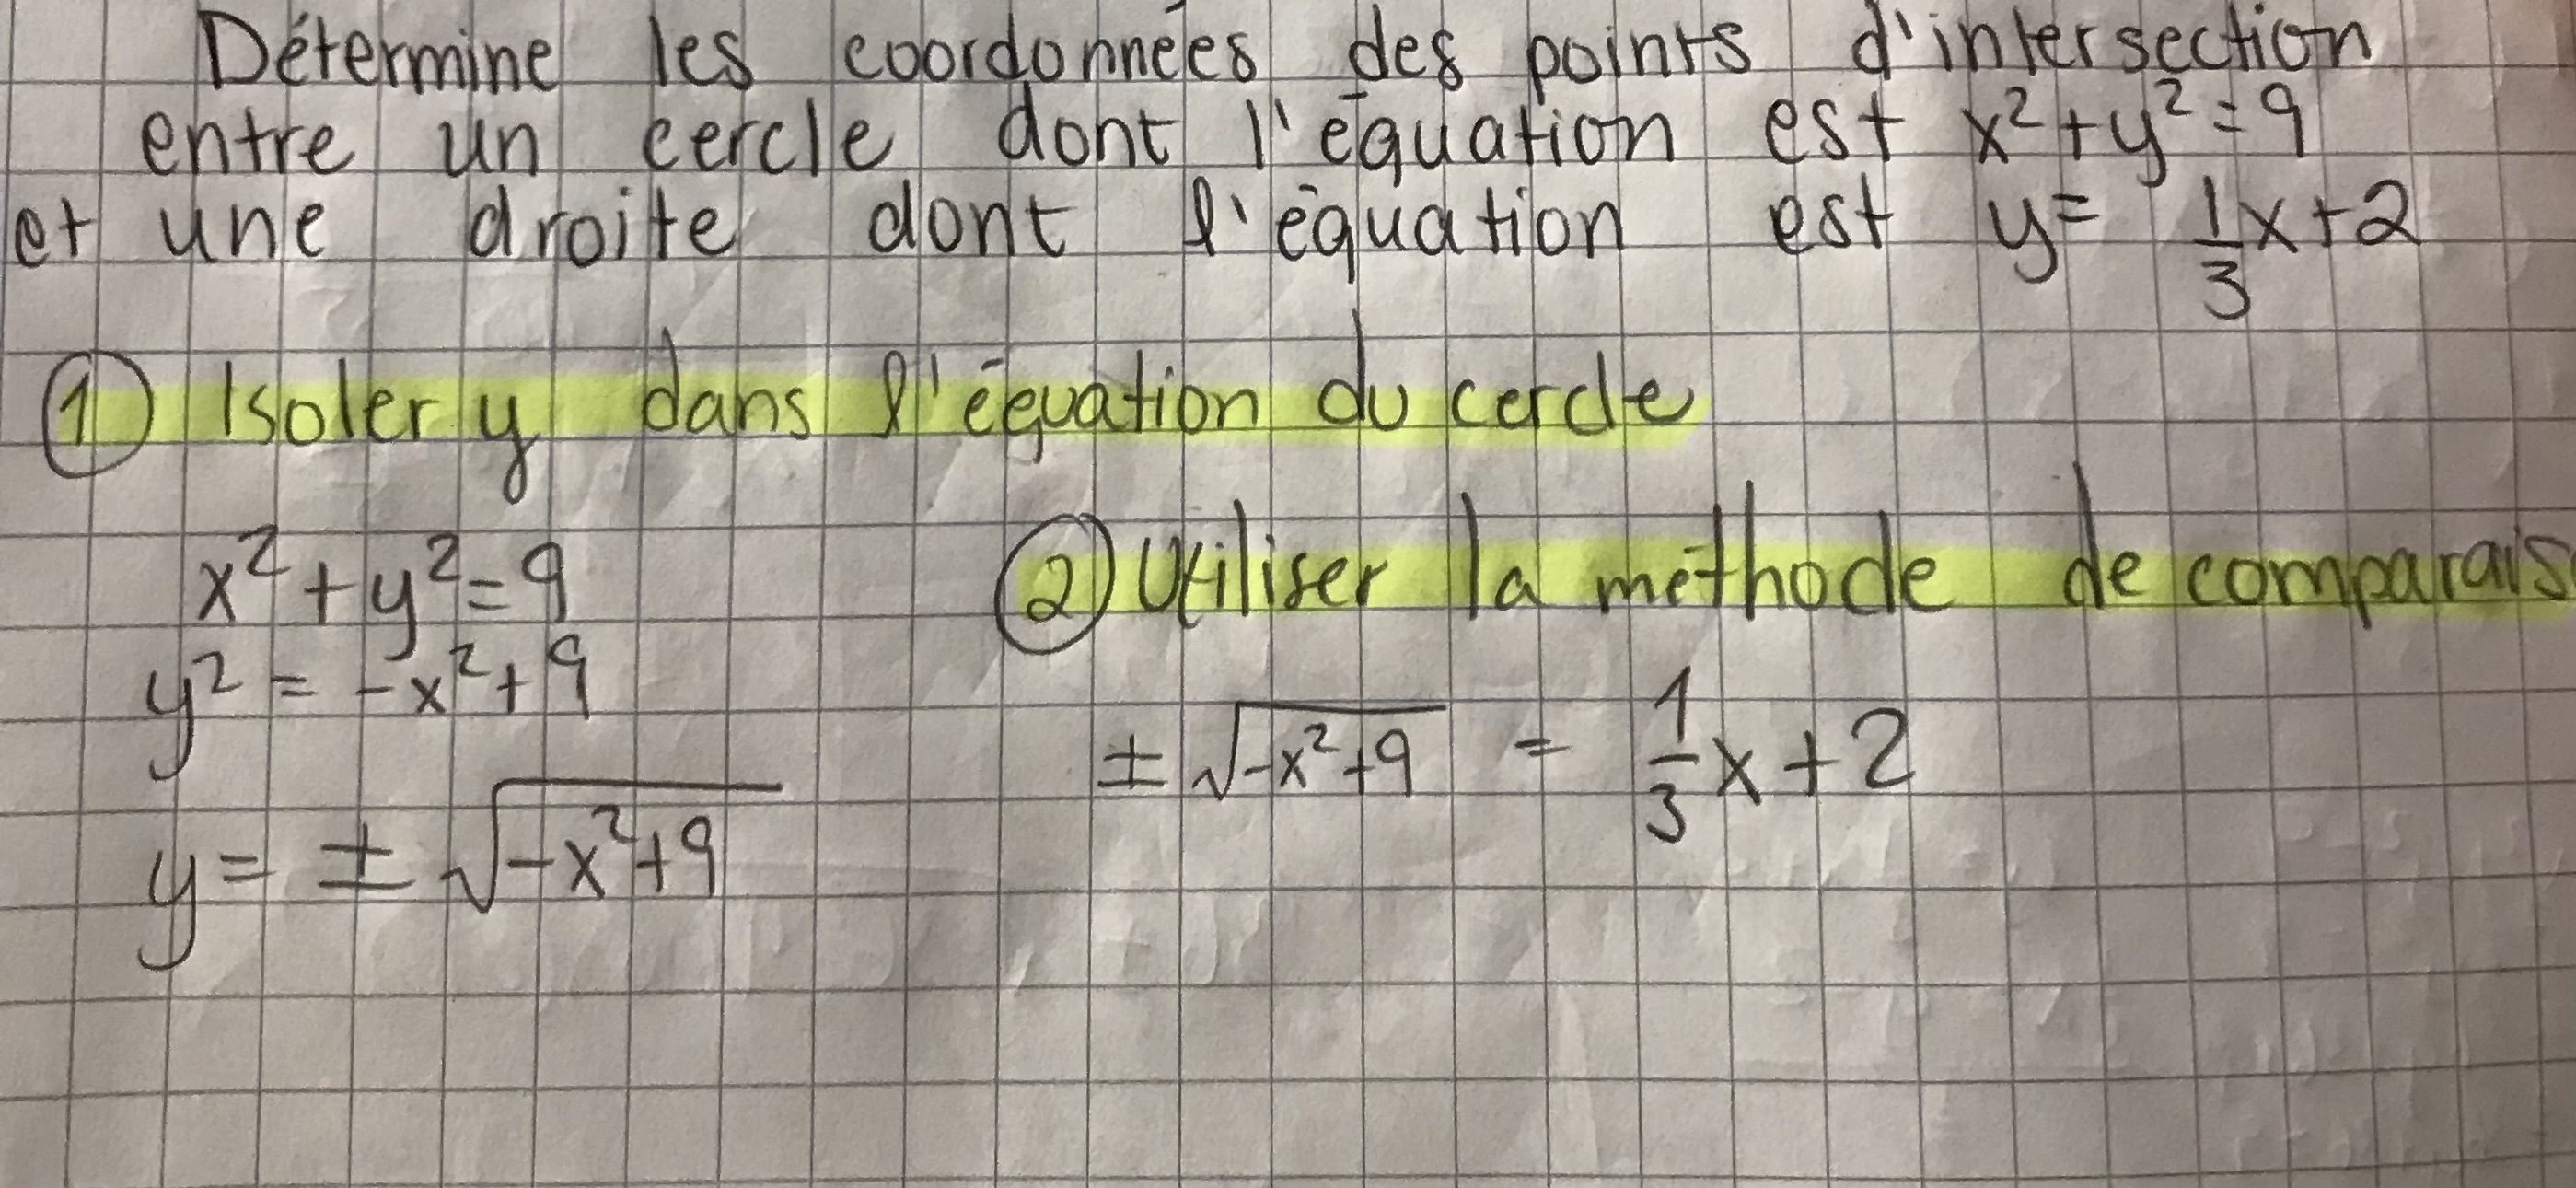 Détermine les coordonnées des points d'intersection
entre un cercle dont l'équation est x²+y²=9
et une droite dont l'équation est y= 1/3x+2
① Isoler y dans l'équation du cercle
x²+y²=9
y² = -x²+9
y= ± √-x²+9
② Utiliser la méthode de comparais
± √-x²+9 = 1/3x+2